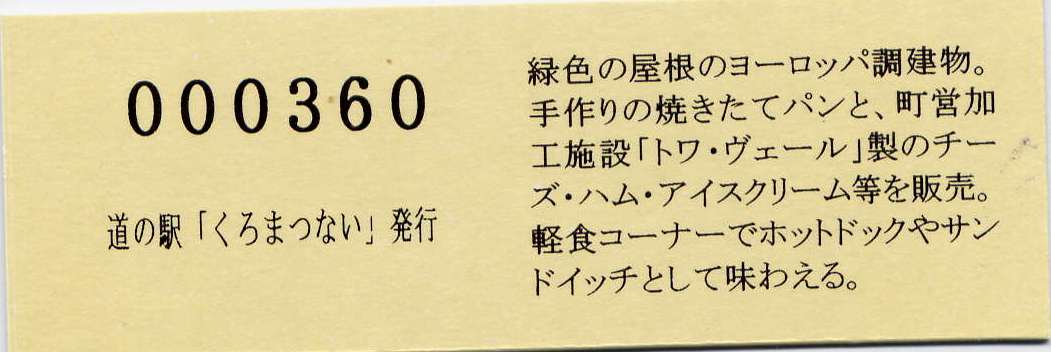 000360
道の駅「くろまつない」発行
緑色の屋根のヨーロッパ調建物。
手作りの焼きたてパンと、町営加
工施設「トワ・ヴェール」製のチー
ズ・ハム・アイスクリーム等を販売。
軽食コーナーでホットドックやサン
ドイッチとして味わえる。